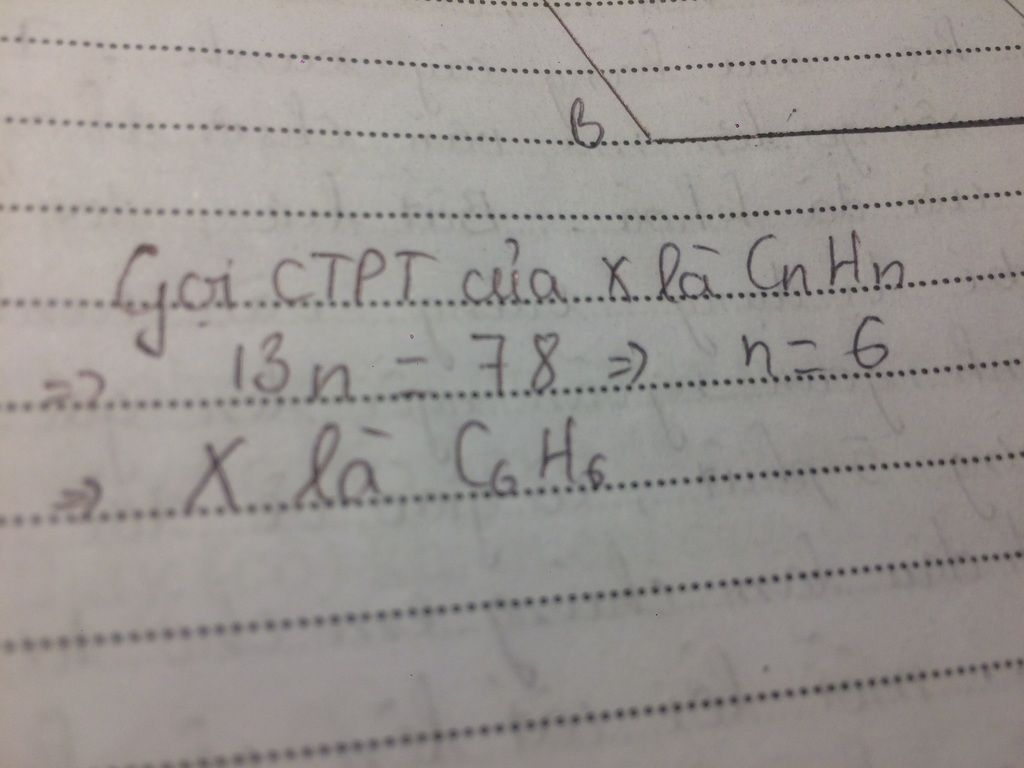 B
Gọi CTPT của X là CnHn
=> 13n = 78 => n = 6
=> X là C₆H₆